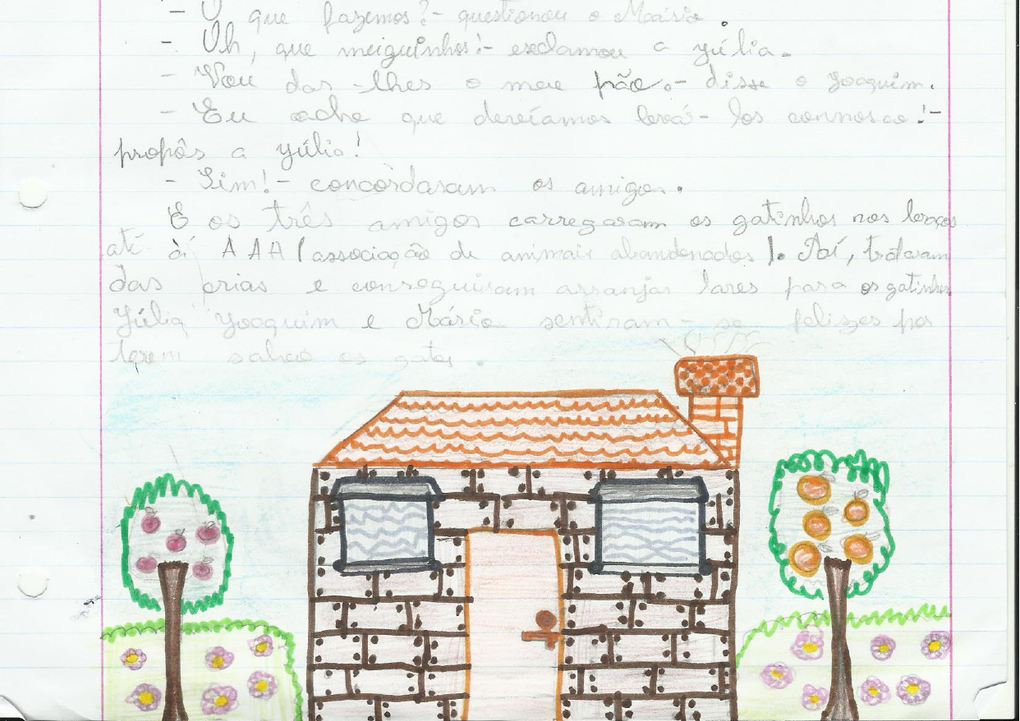 - O que fazemos? - questionou o Mário.
- Oh, que meiguinhos! - exclamou a Júlia.
- Vou dar-lhes o meu pão. - disse o Joaquim.
- Eu acho que deveíamos levá-los connosco! -
propôs a Júlia!
- Sim! - concordaram os amigos.
E os três amigos carregaram os gatinhos nos braços
até à AAA (associação de animais abandonados). Aí, trataram
das crias e conseguiram arranjar lares para os gatinhos
Júlia, Joaquim e Mário sentiram-se felizes por
terem salvo os gatos.